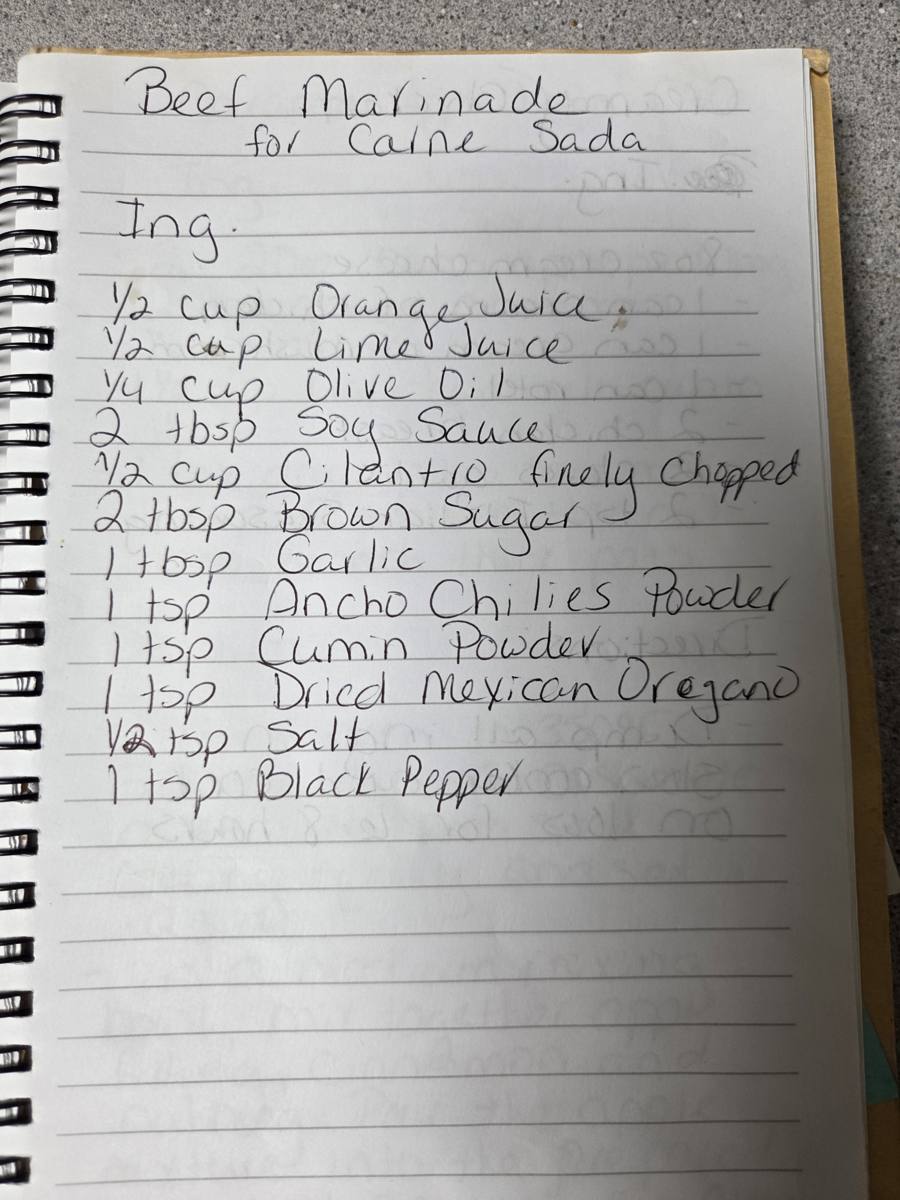 Beef Marinade
for Carne Sada
Ing.
1/2 cup Orange Juice.
1/2 cup Lime Juice
1/4 cup Olive Oil
2 tbsp Soy Sauce
1/2 cup Cilantro finely Chopped
2 tbsp Brown Sugar
1 tbsp Garlic
1 tsp Ancho Chilies Powder
1 tsp Cumin Powder
1 tsp Dried Mexican Oregano
1/2 tsp Salt
1 tsp Black Pepper